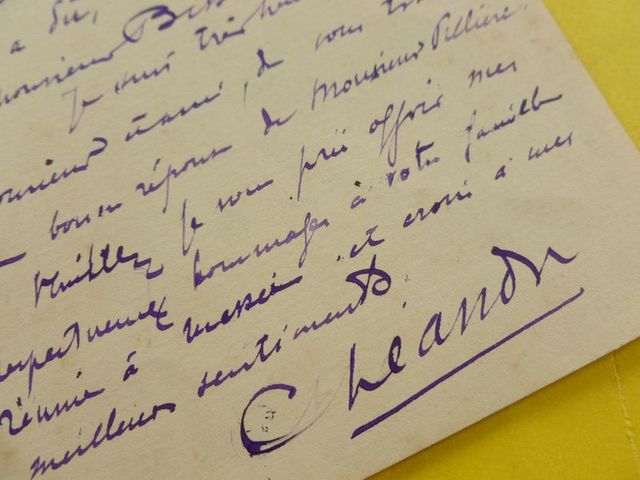 a dû,
Monsieur
Je suis très heu
Monsieur et ami, de vous
bonne réponse de Monsieur Pellière.
Veuillez je vous prie offrir mes
respectueux hommages à votre famille
réunie à et croire à mes
meilleurs sentiments.